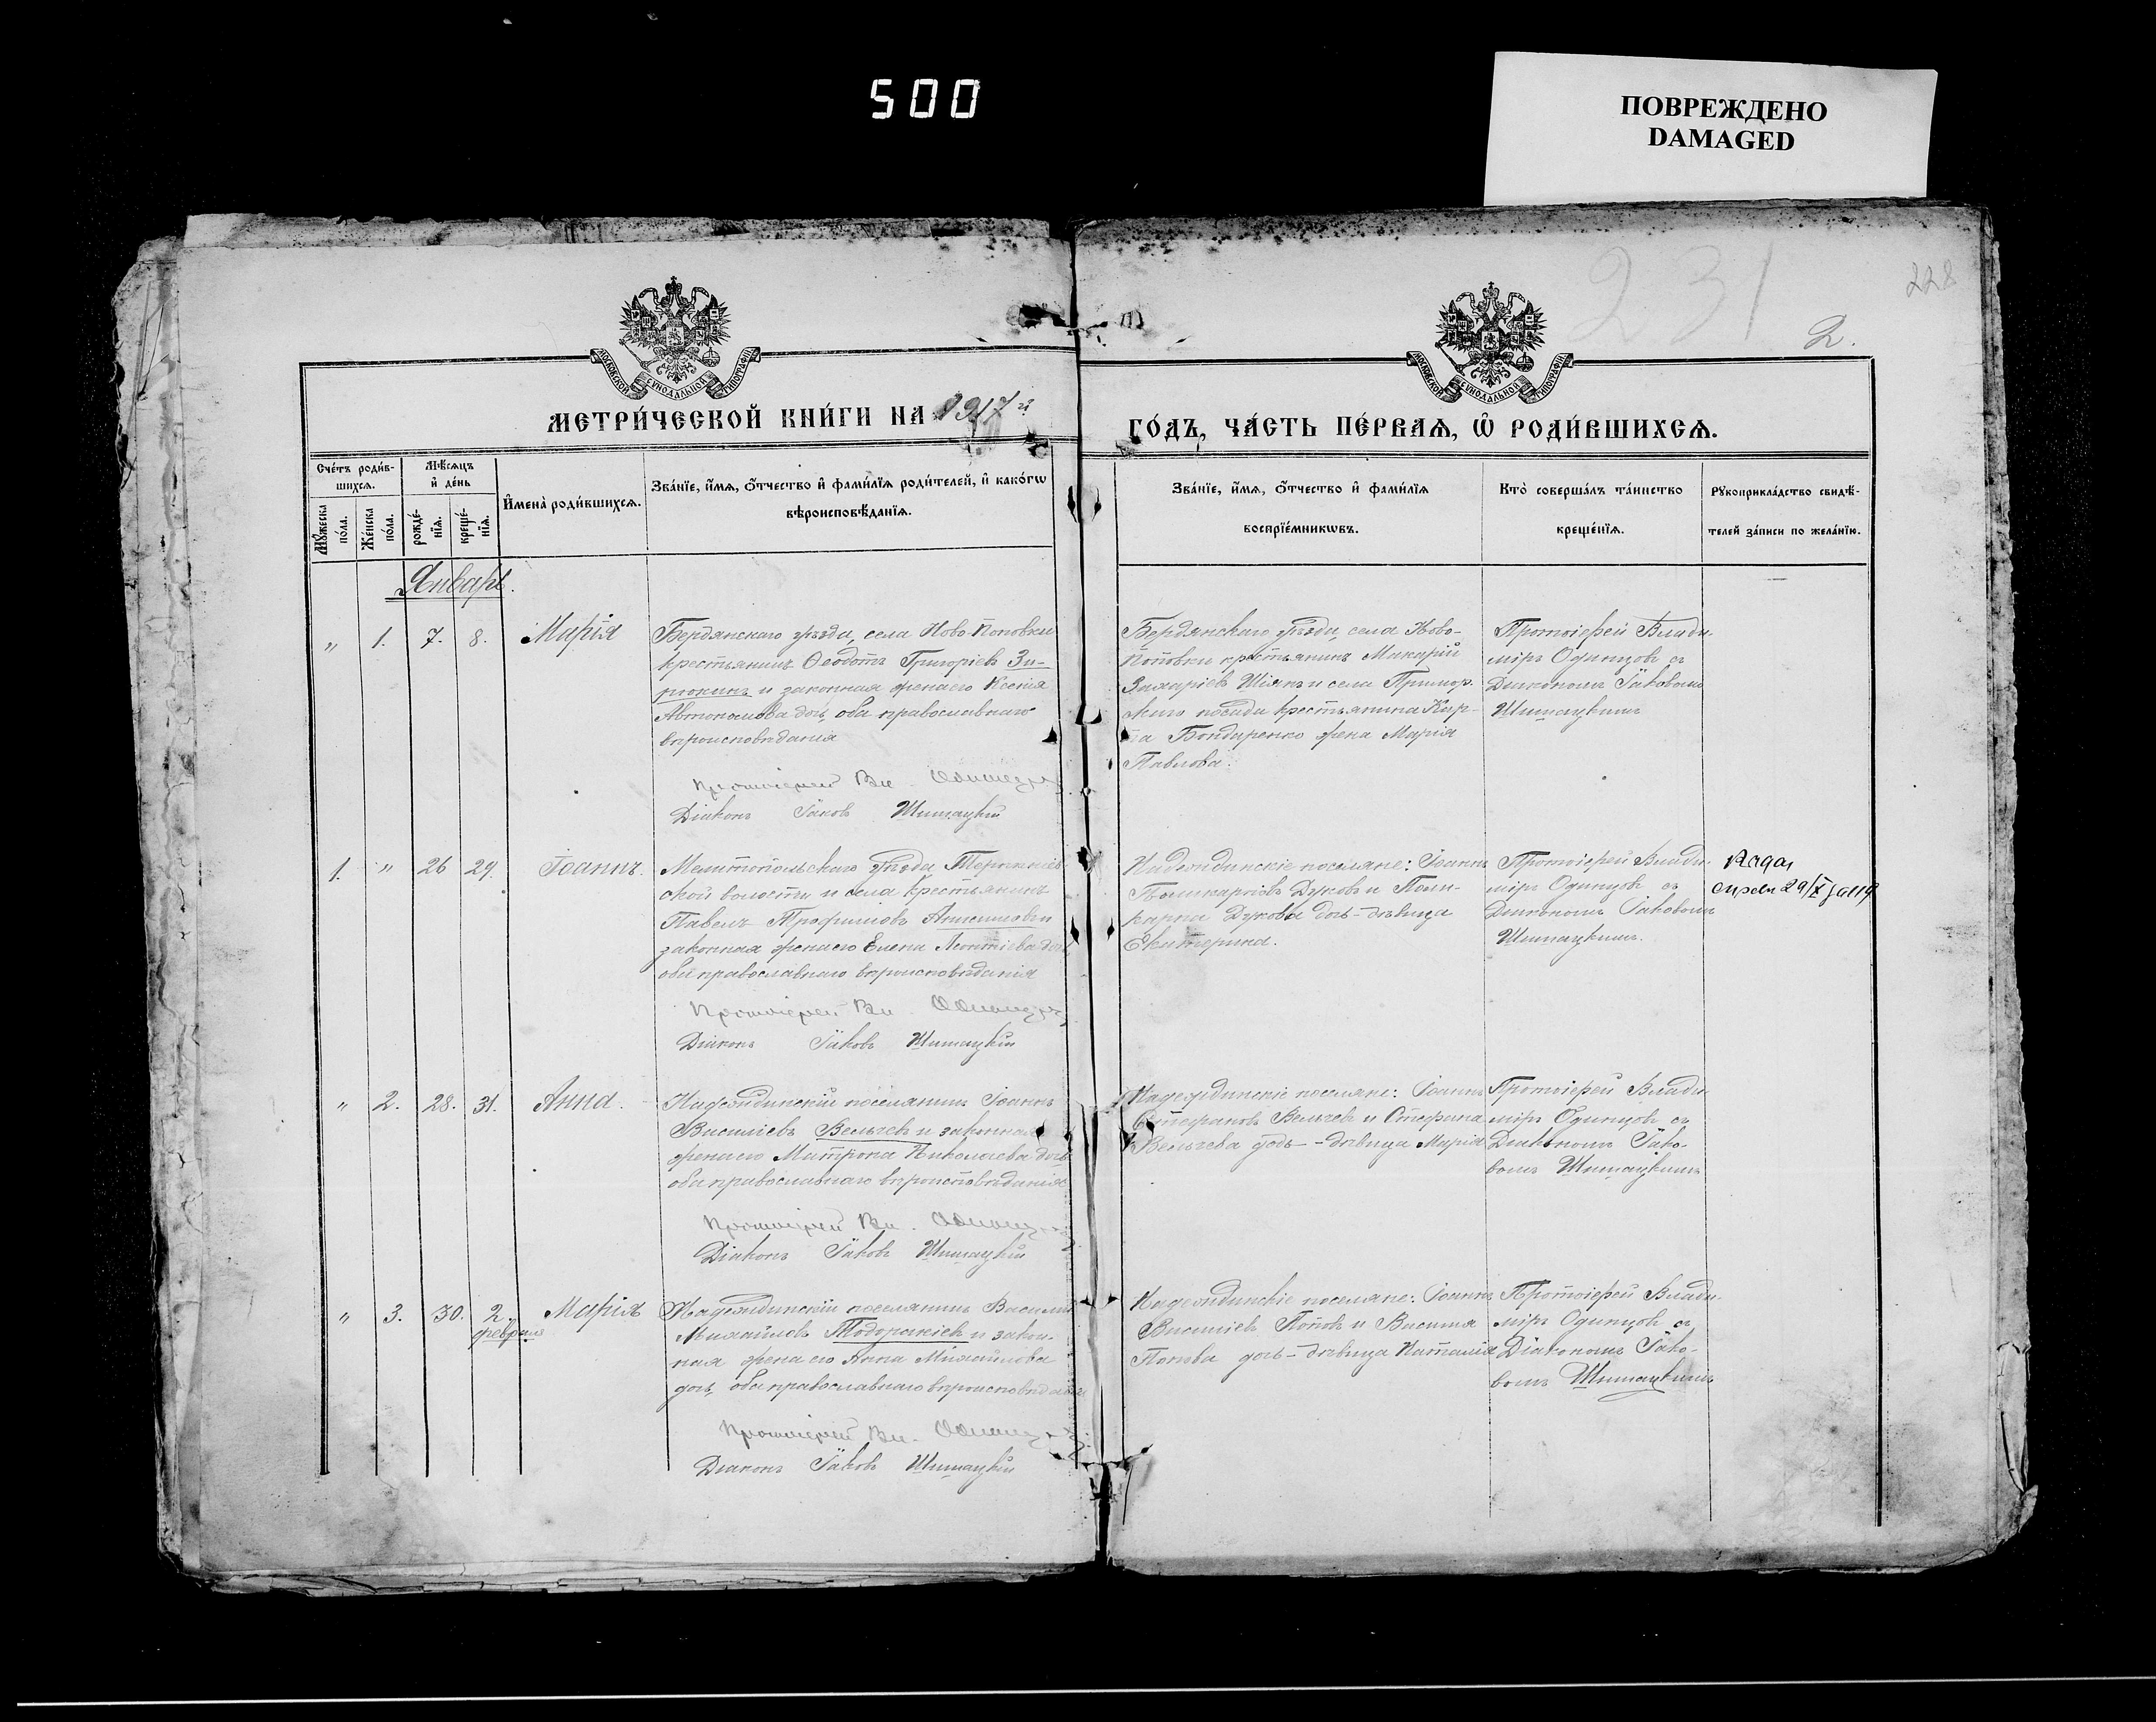 500
ПОВРЕЖДЕНО
DAMAGED
231
228
2.
МОСКОВСКОЙ СУНОДАЛЬНОЙ ТИПОГРАФІИ
МОСКОВСКОЙ СУНОДАЛЬНОЙ ТИПОГРАФІИ
МЕТРИ́ЧЕСКОЙ КНИ́ГИ НА 1917й
ГО́ДЪ, ЧА́СТЬ ПЕ́РВАѦ, Ѽ РОДИ́ВШИХСѦ.
Сче́тъ роди́в-
шихсѧ.
Мѣ́сѧцъ
и҆ де́нь
Мꙋ́жеска по́ла.
Же́нска по́ла.
рожде́-нїѧ.
креще́-нїѧ.
И҆мена̀ роди́вшихсѧ.
Зва́нїе, и҆́мѧ, ѻ҆́тчество и҆ фами́лїѧ роди́телей, и҆ како́гѡ
вѣроисповѣ́данїѧ.
Зва́нїе, и҆́мѧ, ѻ҆́тчество и҆ фами́лїѧ
воспрїе́мникѡвъ.
Кто̀ соверша́лъ та́инство
креще́нїѧ.
Рꙋкоприкла́дство свидѣ́-
телей за́писи по жела́нїю.
Январь.
" 1. 7. 8. Марія
Бердянскаго уѣзда, села Ново-Поповки
крестьянинъ Ѳеодотъ Григоріевъ Зи-
и законная жена его Ксенія
Автономова дочь, оба православнаго
вѣроисповѣданія
Протоіерей Вл. Одинцовъ
Діаконъ Іаковъ Шишацкій
Бердянскаго уѣзда, села Ново-
Поповки крестьянинъ Макарій
Захаріевъ Шіянъ и села Примор-
скаго посада крестьянина Кар-
па Бондаренко жена Марія
Павлова.
Протоіерей Влади-
міръ Одинцовъ съ
Діакономъ Іаковомъ
Шишацкимъ
1. " 26 29. Іоаннъ.
Мелитопольскаго уѣзда
ской волости и села крестьянинъ
Павелъ Трофимовъ и
законная жена его Елена Леонтіева дочь,
оба православнаго вѣроисповѣданія
Протоіерей Вл. Одинцовъ
Діаконъ Іаковъ Шишацкій
Надеждинскіе поселяне: Іоаннъ
Поликарповъ Дуковъ и Поли-
карпа Дукова дочь-дѣвица
Екатерина.
Протоіерей Влади-
міръ Одинцовъ съ
Діакономъ Іаковомъ
Шишацкимъ.
29/X
" 2. 28. 31. Анна.
Надеждинскій поселянинъ Іоаннъ
Василіевъ Вельчевъ и законная
жена его Матрона Николаева дочь,
оба православнаго вѣроисповѣданія
Протоіерей Вл. Одинцовъ
Діаконъ Іаковъ Шишацкій
Надеждинскіе поселяне: Іоаннъ
Стефановъ Вельчевъ и Стефана
Вельчева дочь - дѣвица Марія
Протоіерей Влади-
міръ Одинцовъ съ
Діакономъ Іако-
вомъ Шишацкимъ
" 3. 30. 2 февраля Марія
Надеждинскій поселянинъ Василій
Михайловъ Тодоракіевъ и закон-
ная жена его Анна Михайлова
дочь, оба православнаго вѣроисповѣданія
Протоіерей Вл. Одинцовъ
Діаконъ Іаковъ Шишацкій
Надеждинскіе поселяне: Іоаннъ
Василіевъ Поповъ и Василія
Попова дочь - дѣвица Наталія
Протоіерей Влади-
міръ Одинцовъ съ
Діакономъ Іако-
вомъ Шишацкимъ